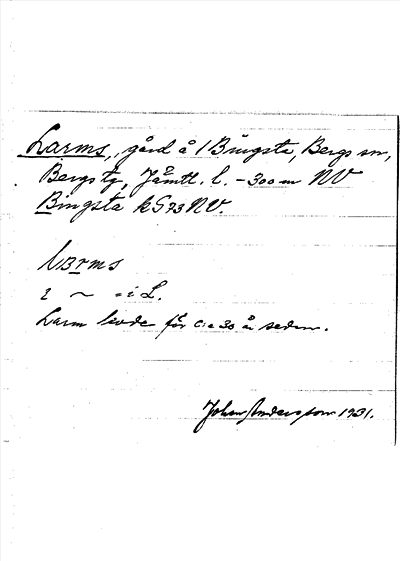 Larms, gård å 1 Bingsta, Bergs sn,
Bergs tg, Jämtl. l. – 300 m NV
Bingsta kG73NV.
lɜrms
i ~ = i L.
Larm levde för c:a 30 år sedan.
Johan Andersson 1931.